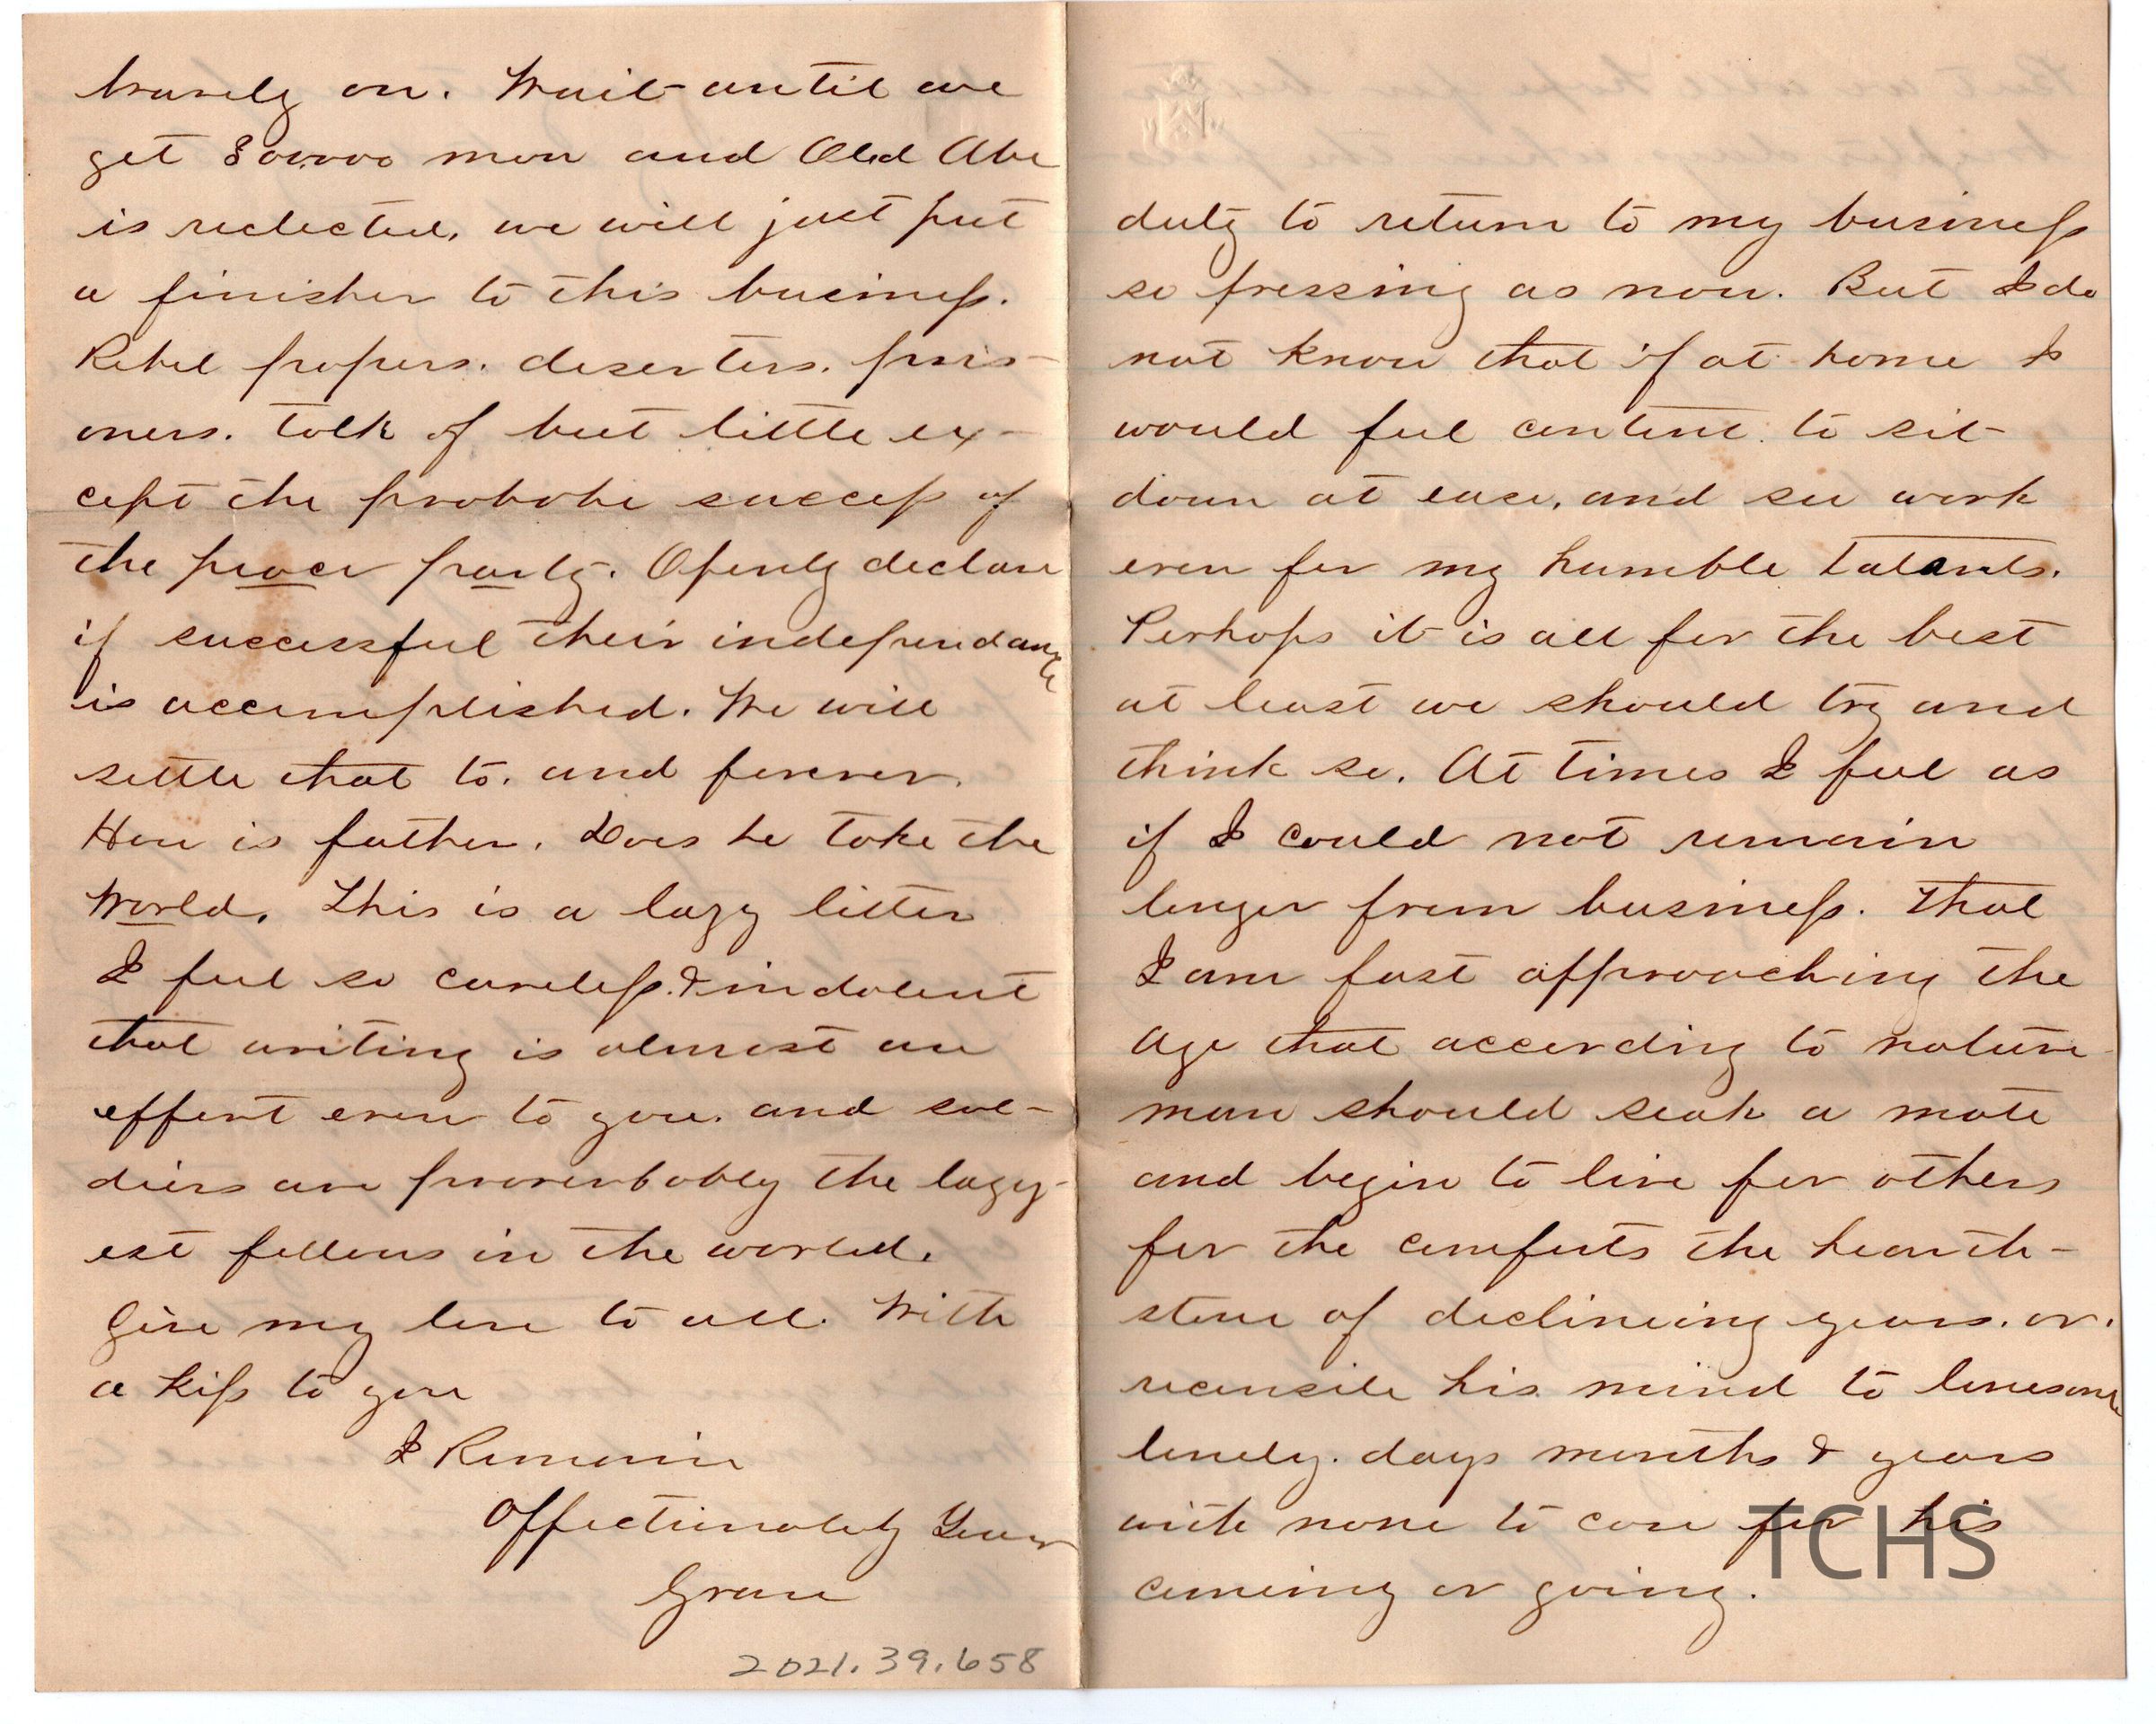 bravely on. Wait until we
get 800,000 men and Old Abe
is reelected, we will just put
a finisher to this business.
Rebel papers. deserters. pris-
oners. talk of but little ex-
cept the probable success of
the peace party. Openly declare
if successful their independance
is accomplished. We will
settle that to. and forever.
How is father. Does he take the
World. This is a lazy letter
I feel so careless & indolent
that writing is almost an
effort even to you. and sol-
diers are proverbobly the lazy-
est fellows in the world.
Give my love to all. With
a kiss to you
I Remain
Affectionately Your
2021.39.658
duty to return to my business
so pressing as now. But I do
not know that if at home I
would feel content to sit
down at ease, and see work
even for my humble talents.
Perhaps it is all for the best
at least we should try and
think so. At times I feel as
if I could not remain
longer from business. That
I am fast approaching the
age that according to nature
man should seak a mate
and begin to live for others
for the comforts the hearth-
stone of declineing years. or.
reconsile his mind to lonesome
lonely. days months & years
with none to care for his
comeing or going.
TCHS